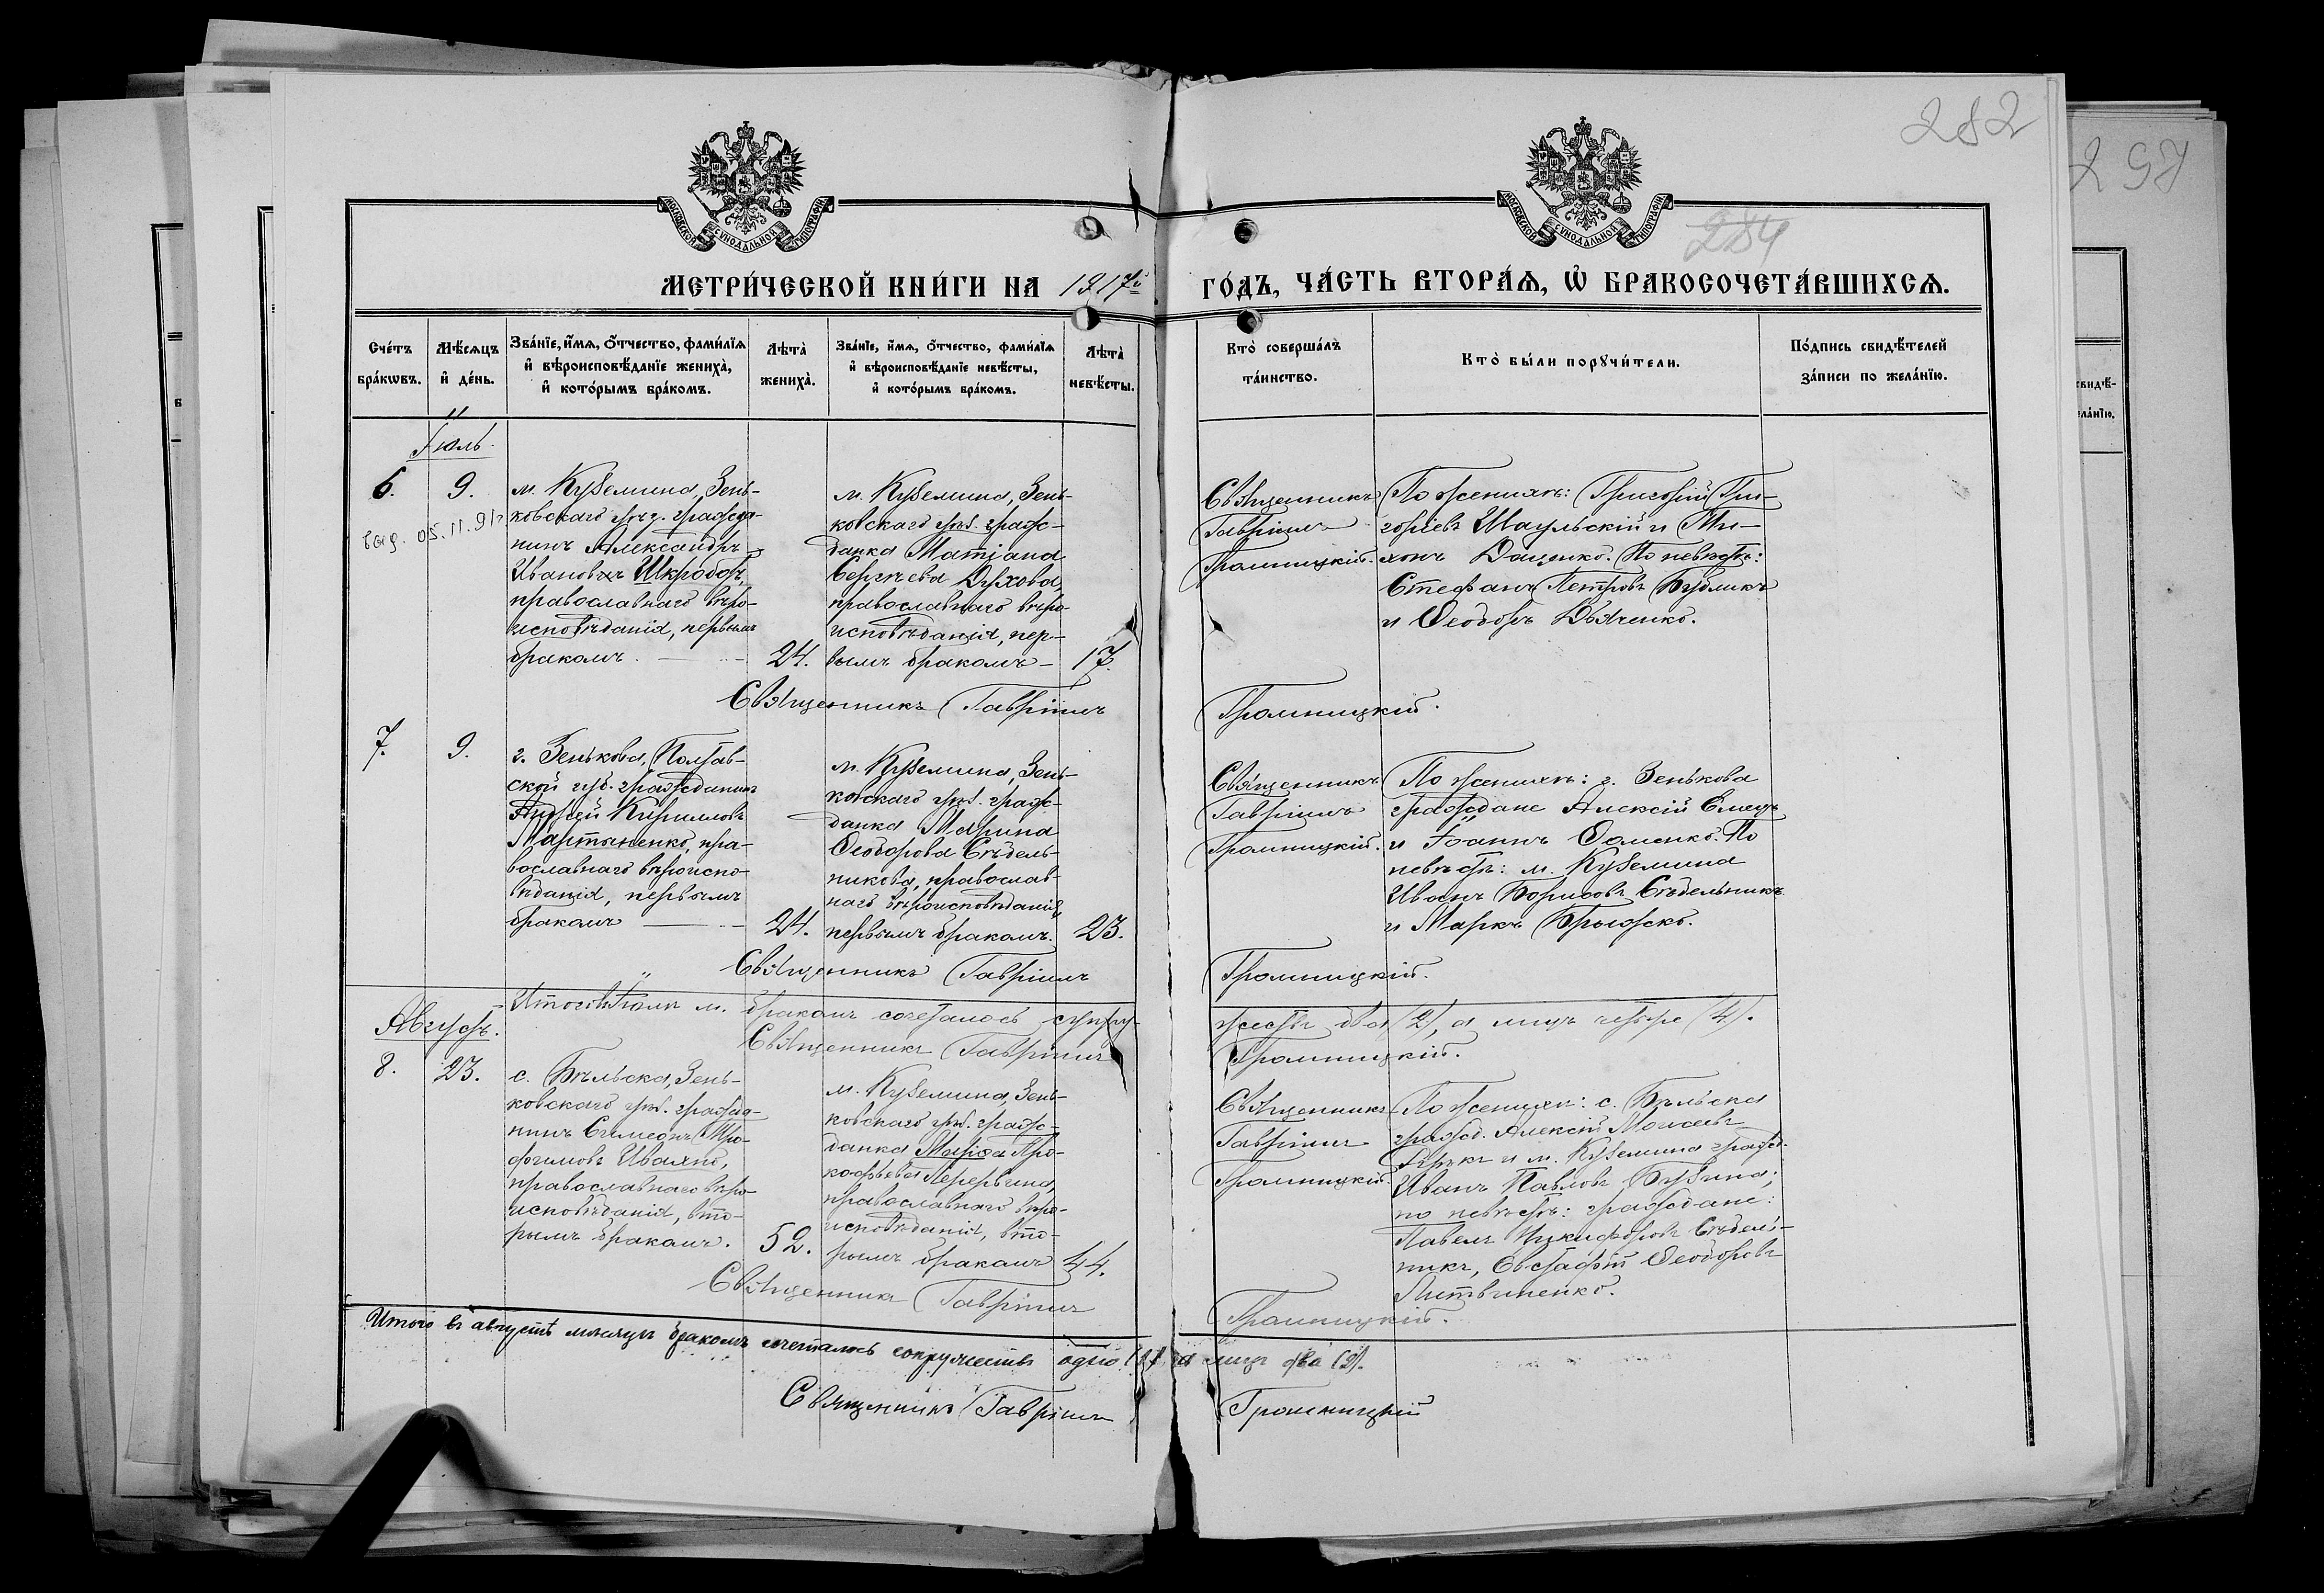 282
297
284
МОСКОВСКОЙ СѴНОДАЛЬНОЙ ТИПОГРАФІИ
МОСКОВСКОЙ СѴНОДАЛЬНОЙ ТИПОГРАФІИ
МЕТРИ́ЧЕСКОЙ КНИ́ГИ НА 1917й ГО́ДЪ, ЧА́СТЬ ВТОРА́Ѧ, Ѡ҆ БРАКОСОЧЕТА́ВШИХСѦ.
Сче́тъ бра́кѡвъ.
Мѣ́сѧцъ и҆ де́нь.
Зва́нїе, и҆́мѧ, ѻ҆́тчество, фами́лїѧ
и҆ вѣроисповѣ́данїе жениха̀,
и҆ кото́рымъ бра́комъ.
Лѣ́та̀ жениха̀.
Зва́нїе, и҆́мѧ, ѻ҆́тчество, фами́лїѧ
и҆ вѣроисповѣ́данїе невѣ́сты,
и҆ кото́рымъ бра́комъ.
Лѣ́та̀ невѣ́сты.
Кто̀ соверша́лъ
та́инство.
Кто̀ бы́ли порꙋчи́тели.
По́дпись свидѣ́телей
за́писи по жела́нїю.
Іюль.
6.
9.
05.11.91
м. Куземина, Зень-
ковскаго уѣз. гражда-
нинъ Александръ
Ивановъ Шкроботъ,
православнаго вѣро-
исповѣданія, первымъ
бракомъ.
24.
м. Куземина, Зень-
ковскаго уѣз. граж-
данка Татіана
Сергѣева Духова,
православнаго вѣро-
исповѣданія, пер-
вымъ бракомъ
17.
Священникъ
Гавріилъ
Громницкій.
По женихѣ: Григорій Гри-
горіевъ Шаульскій и Ти-
хонъ Даценко. По невѣстѣ:
Стефанъ Петровъ Бубликъ
и Ѳеодоръ Дяченко.
Священникъ Гавріилъ Громницкій.
7.
9.
г. Зенькова, Полтав-
ской губ. гражданинъ
Андрей Кирилловъ
Мартыненко, пра-
вославнаго вѣроиспо-
вѣданія, первымъ
бракомъ
24.
м. Куземина, Зень-
ковскаго уѣз. граж-
данка Марина
Ѳеодорова Сѣдель-
никова, православ-
наго вѣроисповѣданія,
первымъ бракомъ.
23.
Священникъ
Гавріилъ
Громницкій.
По женихѣ: г. Зенькова
граждане Алексій Емецъ
и Іоаннъ Ѳоменко. По
невѣстѣ: м. Куземина
Иванъ Борисовъ Сѣдельникъ
и Маркъ
Священникъ Гавріилъ Громницкій.
Итого въ Іюлѣ м. бракомъ сочеталось супру-
жествъ два (2), а лицъ четыре (4).
Священникъ Гавріилъ Громницкій.
Августъ.
8.
23.
с. Бѣльска, Зень-
ковскаго уѣз. гражда-
нинъ Симеонъ Тро-
фимовъ Ивахно,
православнаго вѣро-
исповѣданія, вто-
рымъ бракомъ.
52.
м. Куземина, Зень-
ковскаго уѣз. граж-
данка Марія Про-
кофьева
православнаго вѣро-
исповѣданія, вто-
рымъ бракомъ
44.
Священникъ
Гавріилъ
Громницкій.
По женихѣ: с. Бѣльска
гражд. Алексій Моисеевъ
и м. Куземина гражд.
Иванъ Павловъ Бузина;
по невѣстѣ: граждане:
Павелъ Никифоровъ Сѣдель-
никъ, Евстафій Ѳеодоровъ
Литвиненко.
Священникъ Гавріилъ Громницкій.
Итого въ августѣ месяцѣ бракомъ сочеталось сопружествъ одно (1), а лицъ два (2).
Священникъ Гавріилъ Громницкій